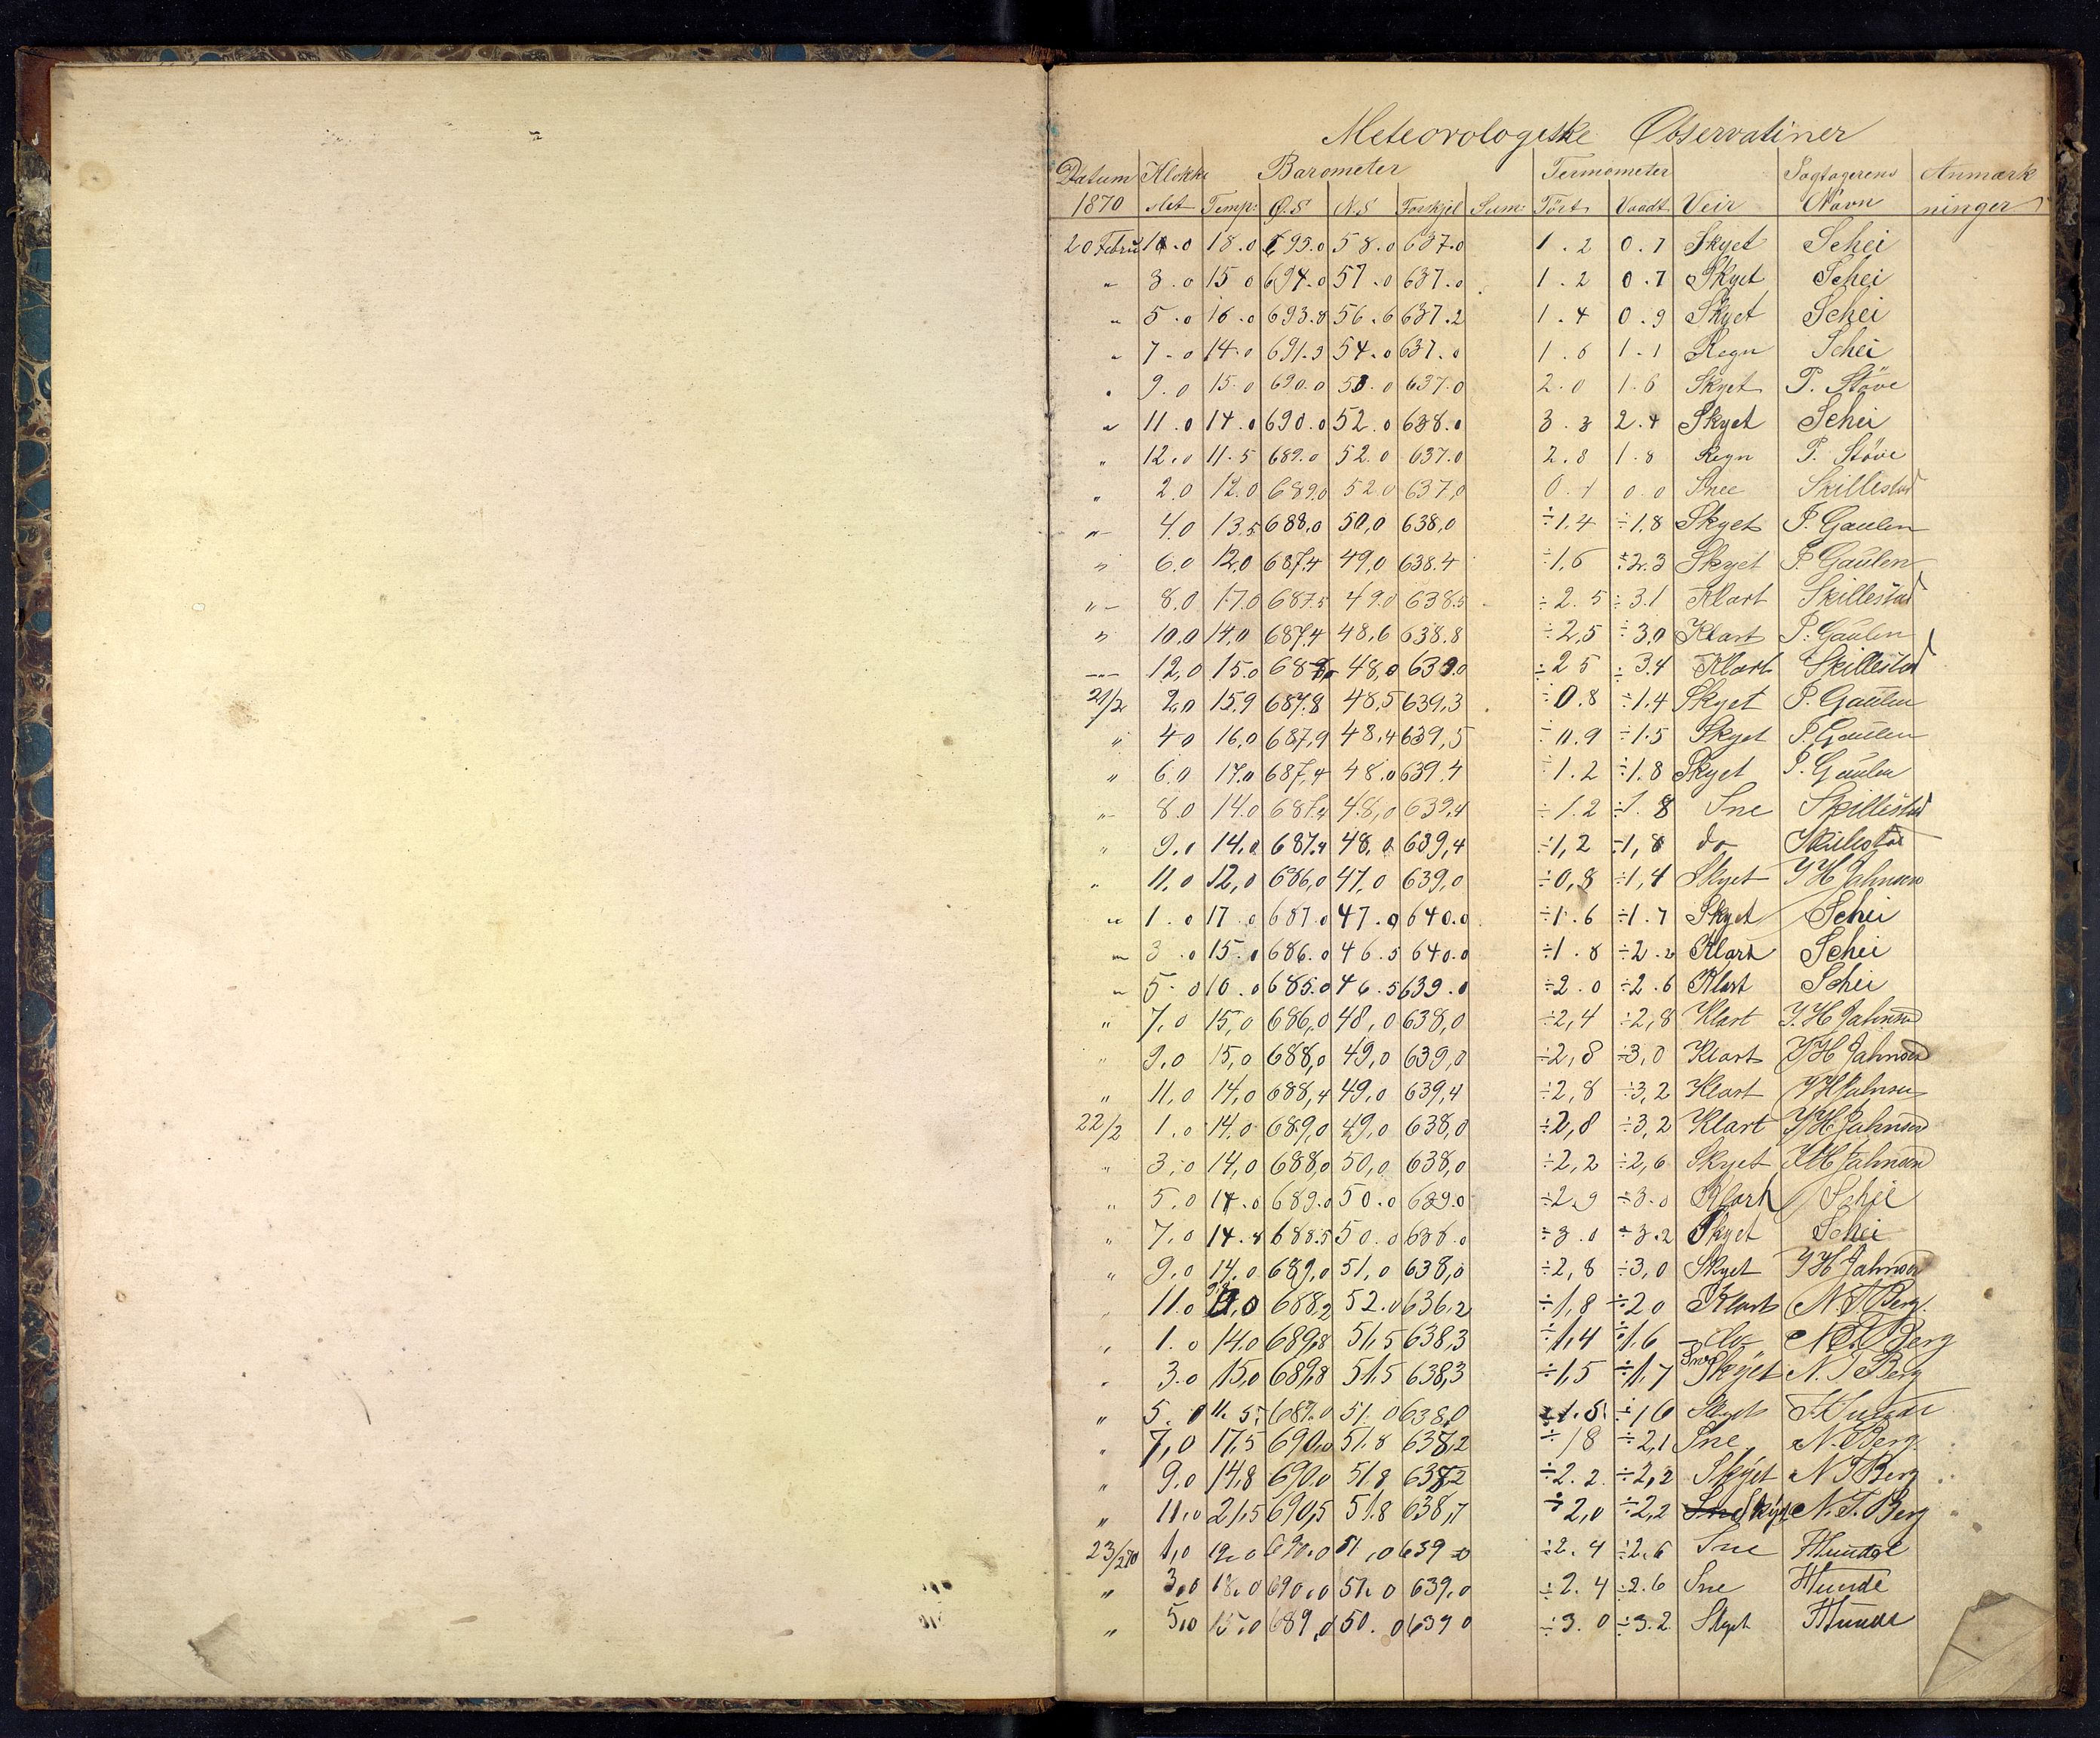 Meteorologiske Observatiner
Datum Klokke Barometer Termometer Iagtagerens Anmærk
1870 slet Temp: Ø.S N.S Forskjel Sum: Tört Vaadt Veir Navn ninger
20 Febru 1.0 18.0 695.0 58.0 637.0 1.2 0.7 Skyet Schei
" 3.0 15.0 694.0 57.0 637.0 1.2 0.7 Skyet Schei
" 5.0 16.0 693.8 56.6 637.2 1.4 0.9 Skyet Schei
" 7.0 14.0 691.3 54.0 637.0 1.6 1.1 Regn Schei
" 9.0 15.0 690.0 53.0 637.0 2.0 1.6 Skyet P. Stöve
" 11.0 14.0 690.0 52.0 638.0 3.3 2.4 Skyet Schei
" 12.0 11.5 689.0 52.0 637.0 2.8 1.8 Regn P. Stöve
" 2.0 12.0 689.0 52.0 637,0 0.1 0.0 Snee Skillestad
" 4.0 13,5 688,0 50,0 638,0 ÷1,4 ÷1,8 Skyet P. Gaulen
" 6.0 12,0 687,4 49,0 638.4 ÷1,6 ÷2.3 Skyet P. Gaulen
" 8.0 17.0 687.5 49.0 638.5 ÷2.5 ÷3.1 Klart Skillestad
" 10,0 14,0 687,4 48,6 638.8 ÷2,5 ÷3.0 Klart P. Gaulen
" 12,0 15.0 687,0 48,0 639.0 ÷2 5 ÷3.4 Klart Skillestad
21/2 2,0 15,9 687,8 48,5 639,3 ÷0.8 ÷1.4 Skyet P. Gaulen
" 4 0 16,0 687,9 48,4 639,5 ÷0.9 ÷1.5 Skyet P. Gaulen
" 6.0 17,0 687,4 48,0 639.4 ÷1.2 ÷1.8 Skyet P. Gaulen
" 8.0 14.0 687,4 48,0 639,4 ÷1.2 ÷1.8 Sne Skillestad
" 9.0 14,0 687,4 48,0 639,4 ÷1,2 ÷1,8 do Skillestad
" 11,0 12,0 686,0 47,0 639,0 ÷0,8 ÷1,4 Skyet Y H Jahnsen
" 1.0 17.0 687.0 47.0 640.0 ÷1.6 ÷1.7 Skyet Schei
" 3.0 15.0 686.0 46.5 640.0 ÷1.8 ÷2.2 Klart Schei
" 5.0 10.0 685.0 46.5 639.0 ÷2.0 ÷2.6 Klart Schei
" 7,0 15,0 686,0 48,0 638,0 ÷2,4 ÷2,8 Klart Y.H Jahnsen
" 9,0 15,0 688,0 49,0 639,0 ÷2,8 ÷3,0 Klart Y H Jahnsen
" 11,0 14,0 688,4 49,0 639,4 ÷2,8 ÷3,2 Klart Y H Jahnsen
22/2 1,0 14,0 689,0 49,0 638,0 ÷2,8 ÷3,2 Klart Y H Jahnsen
" 3,0 14,0 688,0 50,0 638,0 ÷2,2 ÷2,6 Skyet Y H Jahnsen
" 5.0 14.0 689.0 50.0 639.0 ÷2.9 ÷3.0 Klart Schei
" 7,0 14.8 688.5 50.0 638.0 ÷3.0 ÷3.2 Skyet Schei
" 9.0 14.0 689,0 51,0 638,0 ÷2,8 ÷3,0 Skyet Y H Jahnsen
" 11.0 688,2 52.0 636,2 ÷1,8 ÷2 0 Klart N. T. Berg.
" 1.0 14.0 689,8 51,5 638,3 ÷1,4 ÷1.6 do N. T. Berg
" 3.0 15,0 689,8 51,5 638,3 ÷1,5 ÷1,7 Sne Skyet N. T Berg
" 5.0 11.5 689.0 51.0 638,0 ÷1.5 ÷1 6 Skyet Hunde
" 7,0 17,5 690,0 51.8 638,2 ÷1 8 ÷2,1 Sne N. Berg
" 9.0 14,8 690.0 51.8 638,2 ÷2.2 ÷2,2 Skyet N T Berg
" 11,0 21,5 690,5 51.8 638,7 ÷2,0 ÷2,2 Sne Skyet N. T. Berg
23/2 70 1,0 19.0 690.0 51,0 639 0 ÷2.4 ÷2.6 Sne Hunde
" 3,0 18.0 690,0 51.0 639,0 ÷2.4 ÷2.6 Sne Hunde
" 5,0 15.0 689,0 50.0 639 0 ÷3.0 ÷3.2 Skyet Hunde